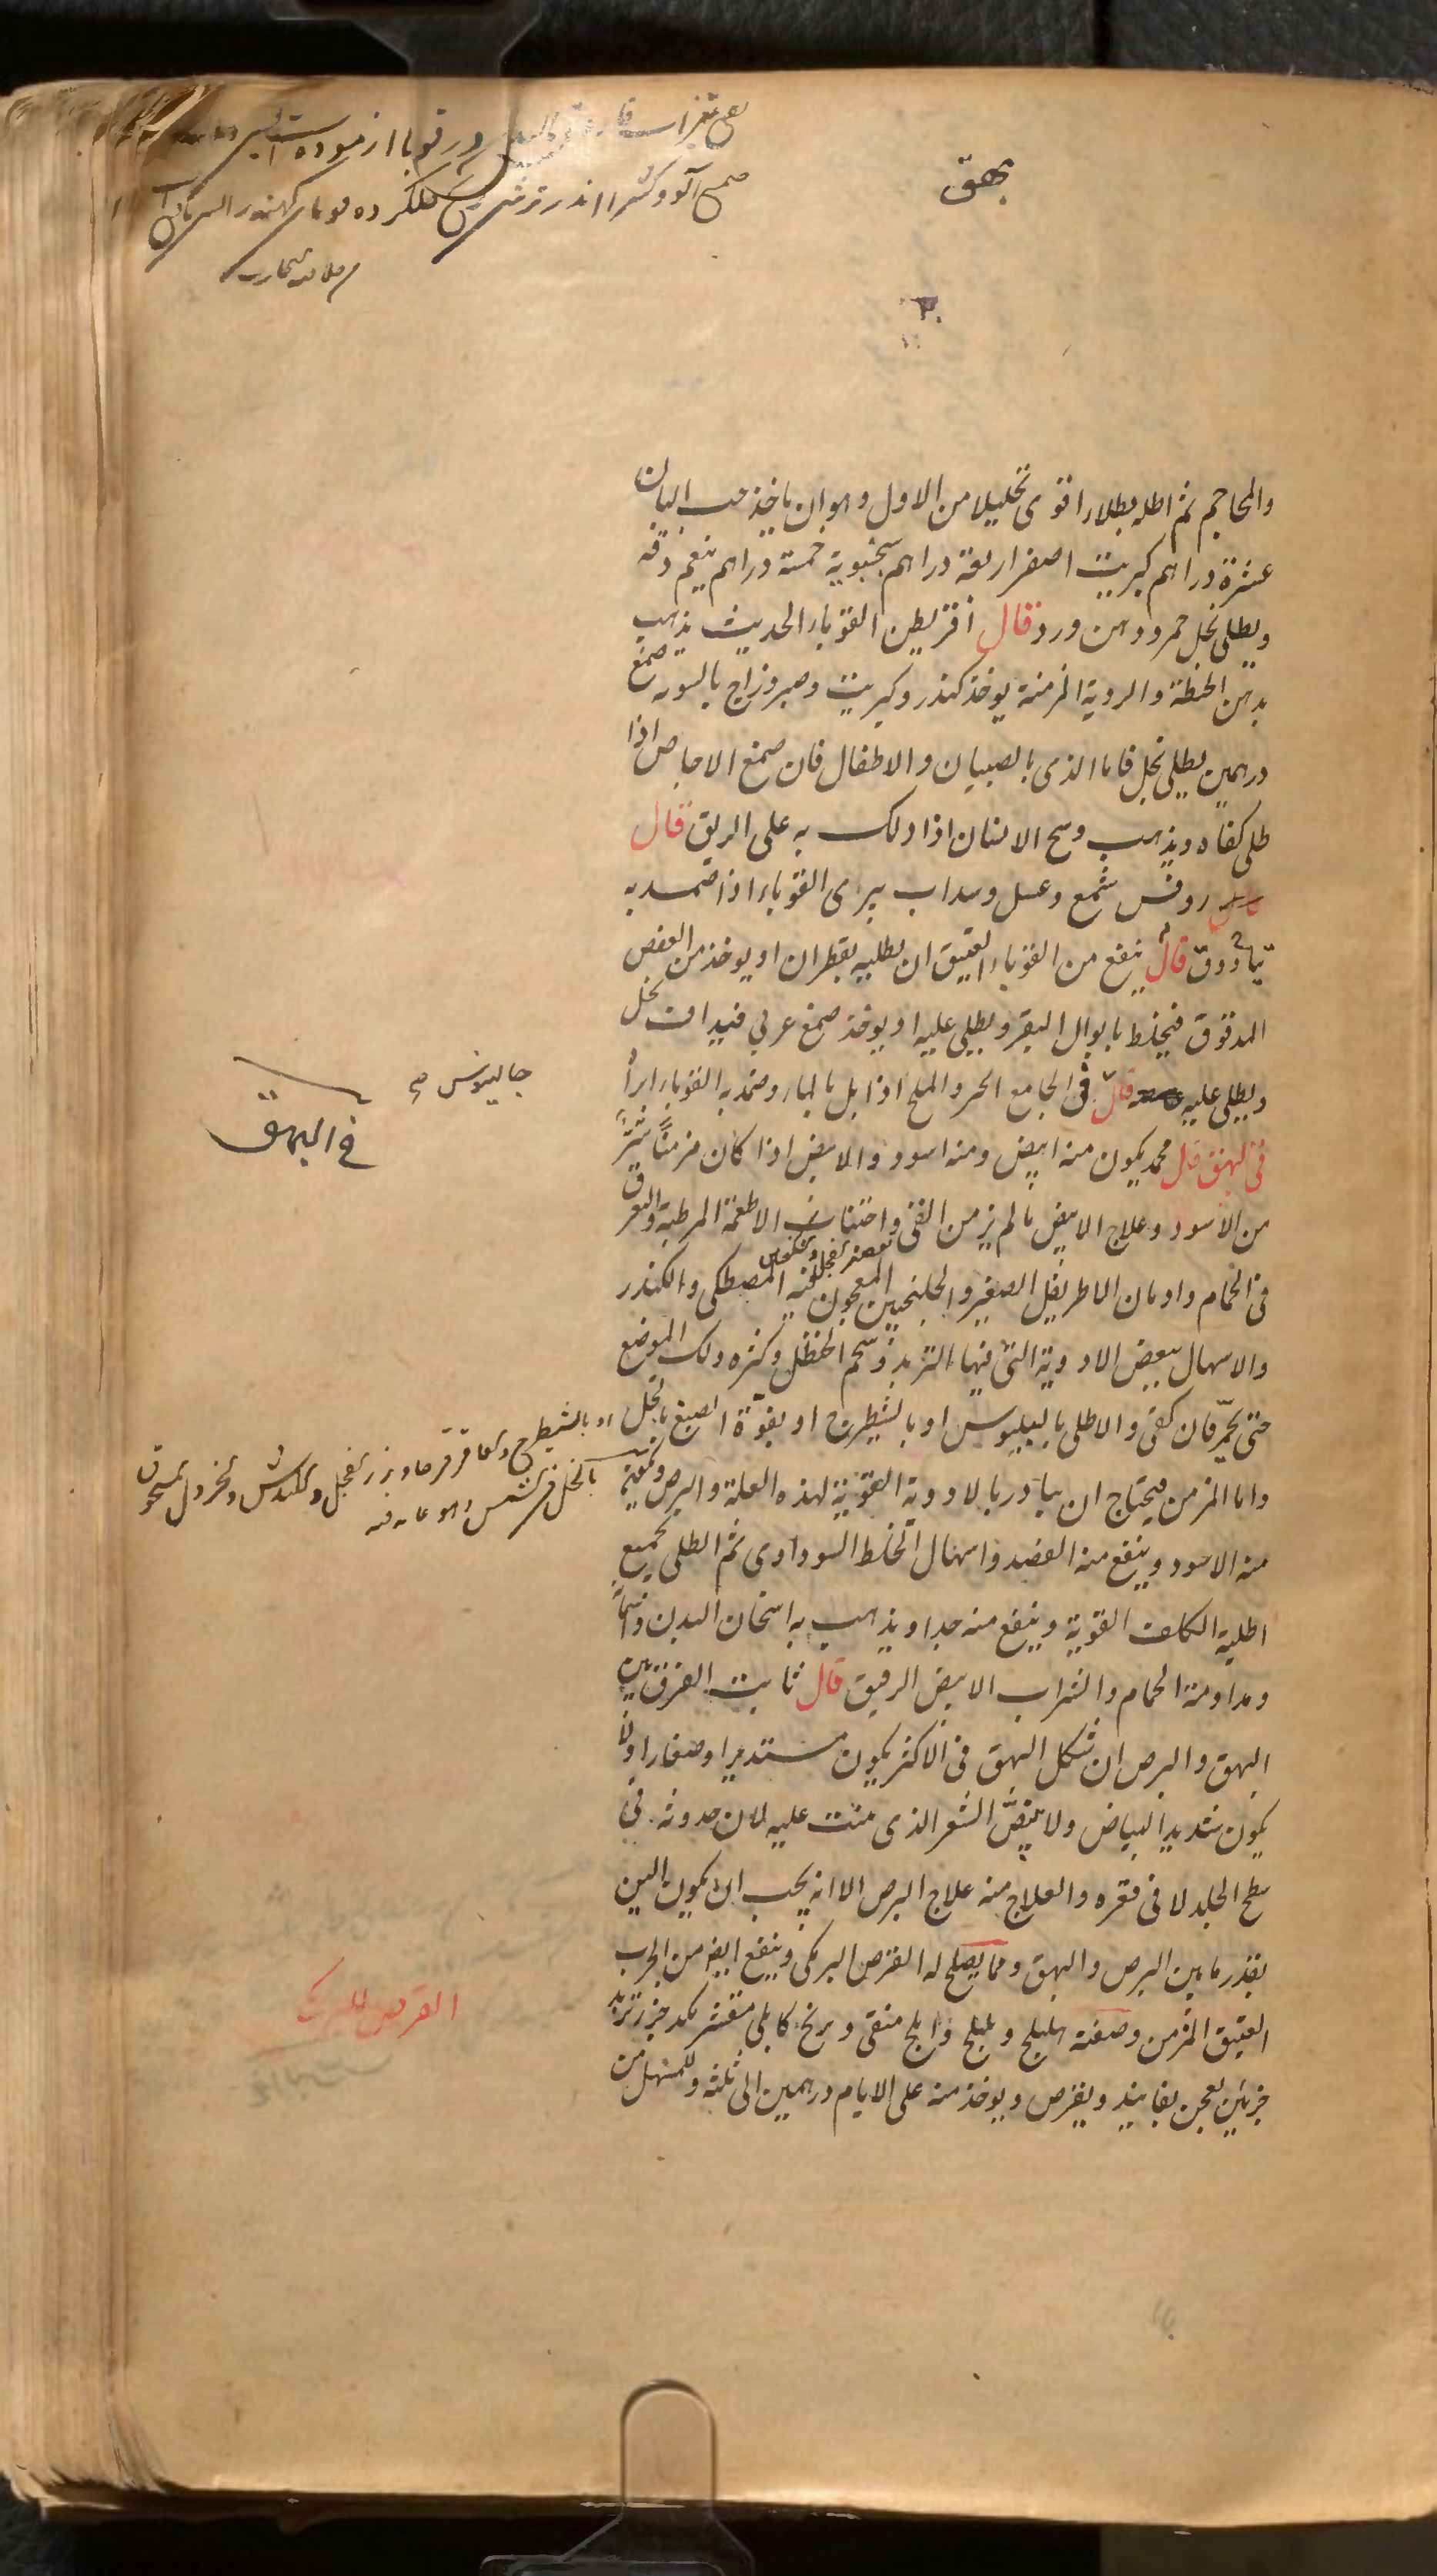 بهق
در قوبا ازموده است
صمغ آلو و کثیرا اندر ترشی حلکرده
والمحاجم ثم اطله بطلاء اقوى تحليلا من الاول وهو ان ياخذ حب البان
عشرة دراهم كبريت اصفر اربعة دراهم سجبوية خمسة دراهم ينعم دقه
ويطلى بخل خمر ودهن ورد قال اقريطن القوباء الحديث يذهب
بدهن الحنطة والردية المزمنة يوخذ كندر وكبريت وصبر وزاج بالسويه صمغ
درهمين يطلى بخل فاما الذى بالصبيان والاطفال فان صمغ الاجاص اذا
طلى كفاه ويذهب وسح الاسنان اذا دلك به على الريق قال
روفس شمع وعسل وسداب يبرى القوباء اذا ضمد به
تياذوق قال ينفع من القوباء العتيق ان يطليه بقطران او يوخذ من العفص
المدقوق فيخلط بابوال البقر ويطلى عليه او يوخذ صمغ عربي فيداف بخل
ويطلى عليه قال فى الجامع الحر والملح اذا بل بالماء وضمد به القوباء ابرأ
جالينوس صح
في البهق
فى البهق قال محمد يكون منه ابيض ومنه اسود والابيض اذا كان مزمنا شر
من الاسود وعلاج الابيض ما لم يزمن القئ واجتناب الاطعمة المرطبة والتعرق
فى الحمام وادمان الاطريفل الصغير والجلنجبين المعجون فيه المصطكى والكندر
والاسهال ببعض الادوية التى فيها التربد وشحم الحنظل وكثره دلك الموضع
حتى يحمر فان كفى والاطلى بالبلبوس او بالشيطرج او بفوة الصبغ بالخل
او بالشيطرج والعاقرقرحا وبزر الفجل والكندش والخردل مسحوق
بالخل فى الشمس
واما المزمن فيحتاج ان يبادر بالادوية القوية لهذه العلة والبرص
منه الاسود وينفع منه الفصد واسهال الخلط السوداوى ثم الطلى بجميع
اطلية الكلف القوية وينفع منه جدا ويذهب به اسخان البدن
ومداومة الحمام والشراب الابيض الرقيق قال ثابت الفرق بين
البهق والبرص ان شكل البهق فى الاكثر يكون مستديرا وصغارا ولا
يكون شديد البياض ولا يبيض الشعر الذى منبت عليه لان حدوثه فى
سطح الجلد لا فى قعره والعلاج منه علاج البرص الا انه يجب ان يكون الين
بقدر ما بين البرص والبهق ومما يصلح له القرص البرمكى وينفع ايضا من الجرب
العتيق المزمن وصفته هليلج وبليلج واملج منقى وبرنج كابلى مقشر مكد جزء تربد
جزئين يعجن بفانيذ ويقرص ويوخذ منه على الايام درهمين الى ثلثة وللمسهل من